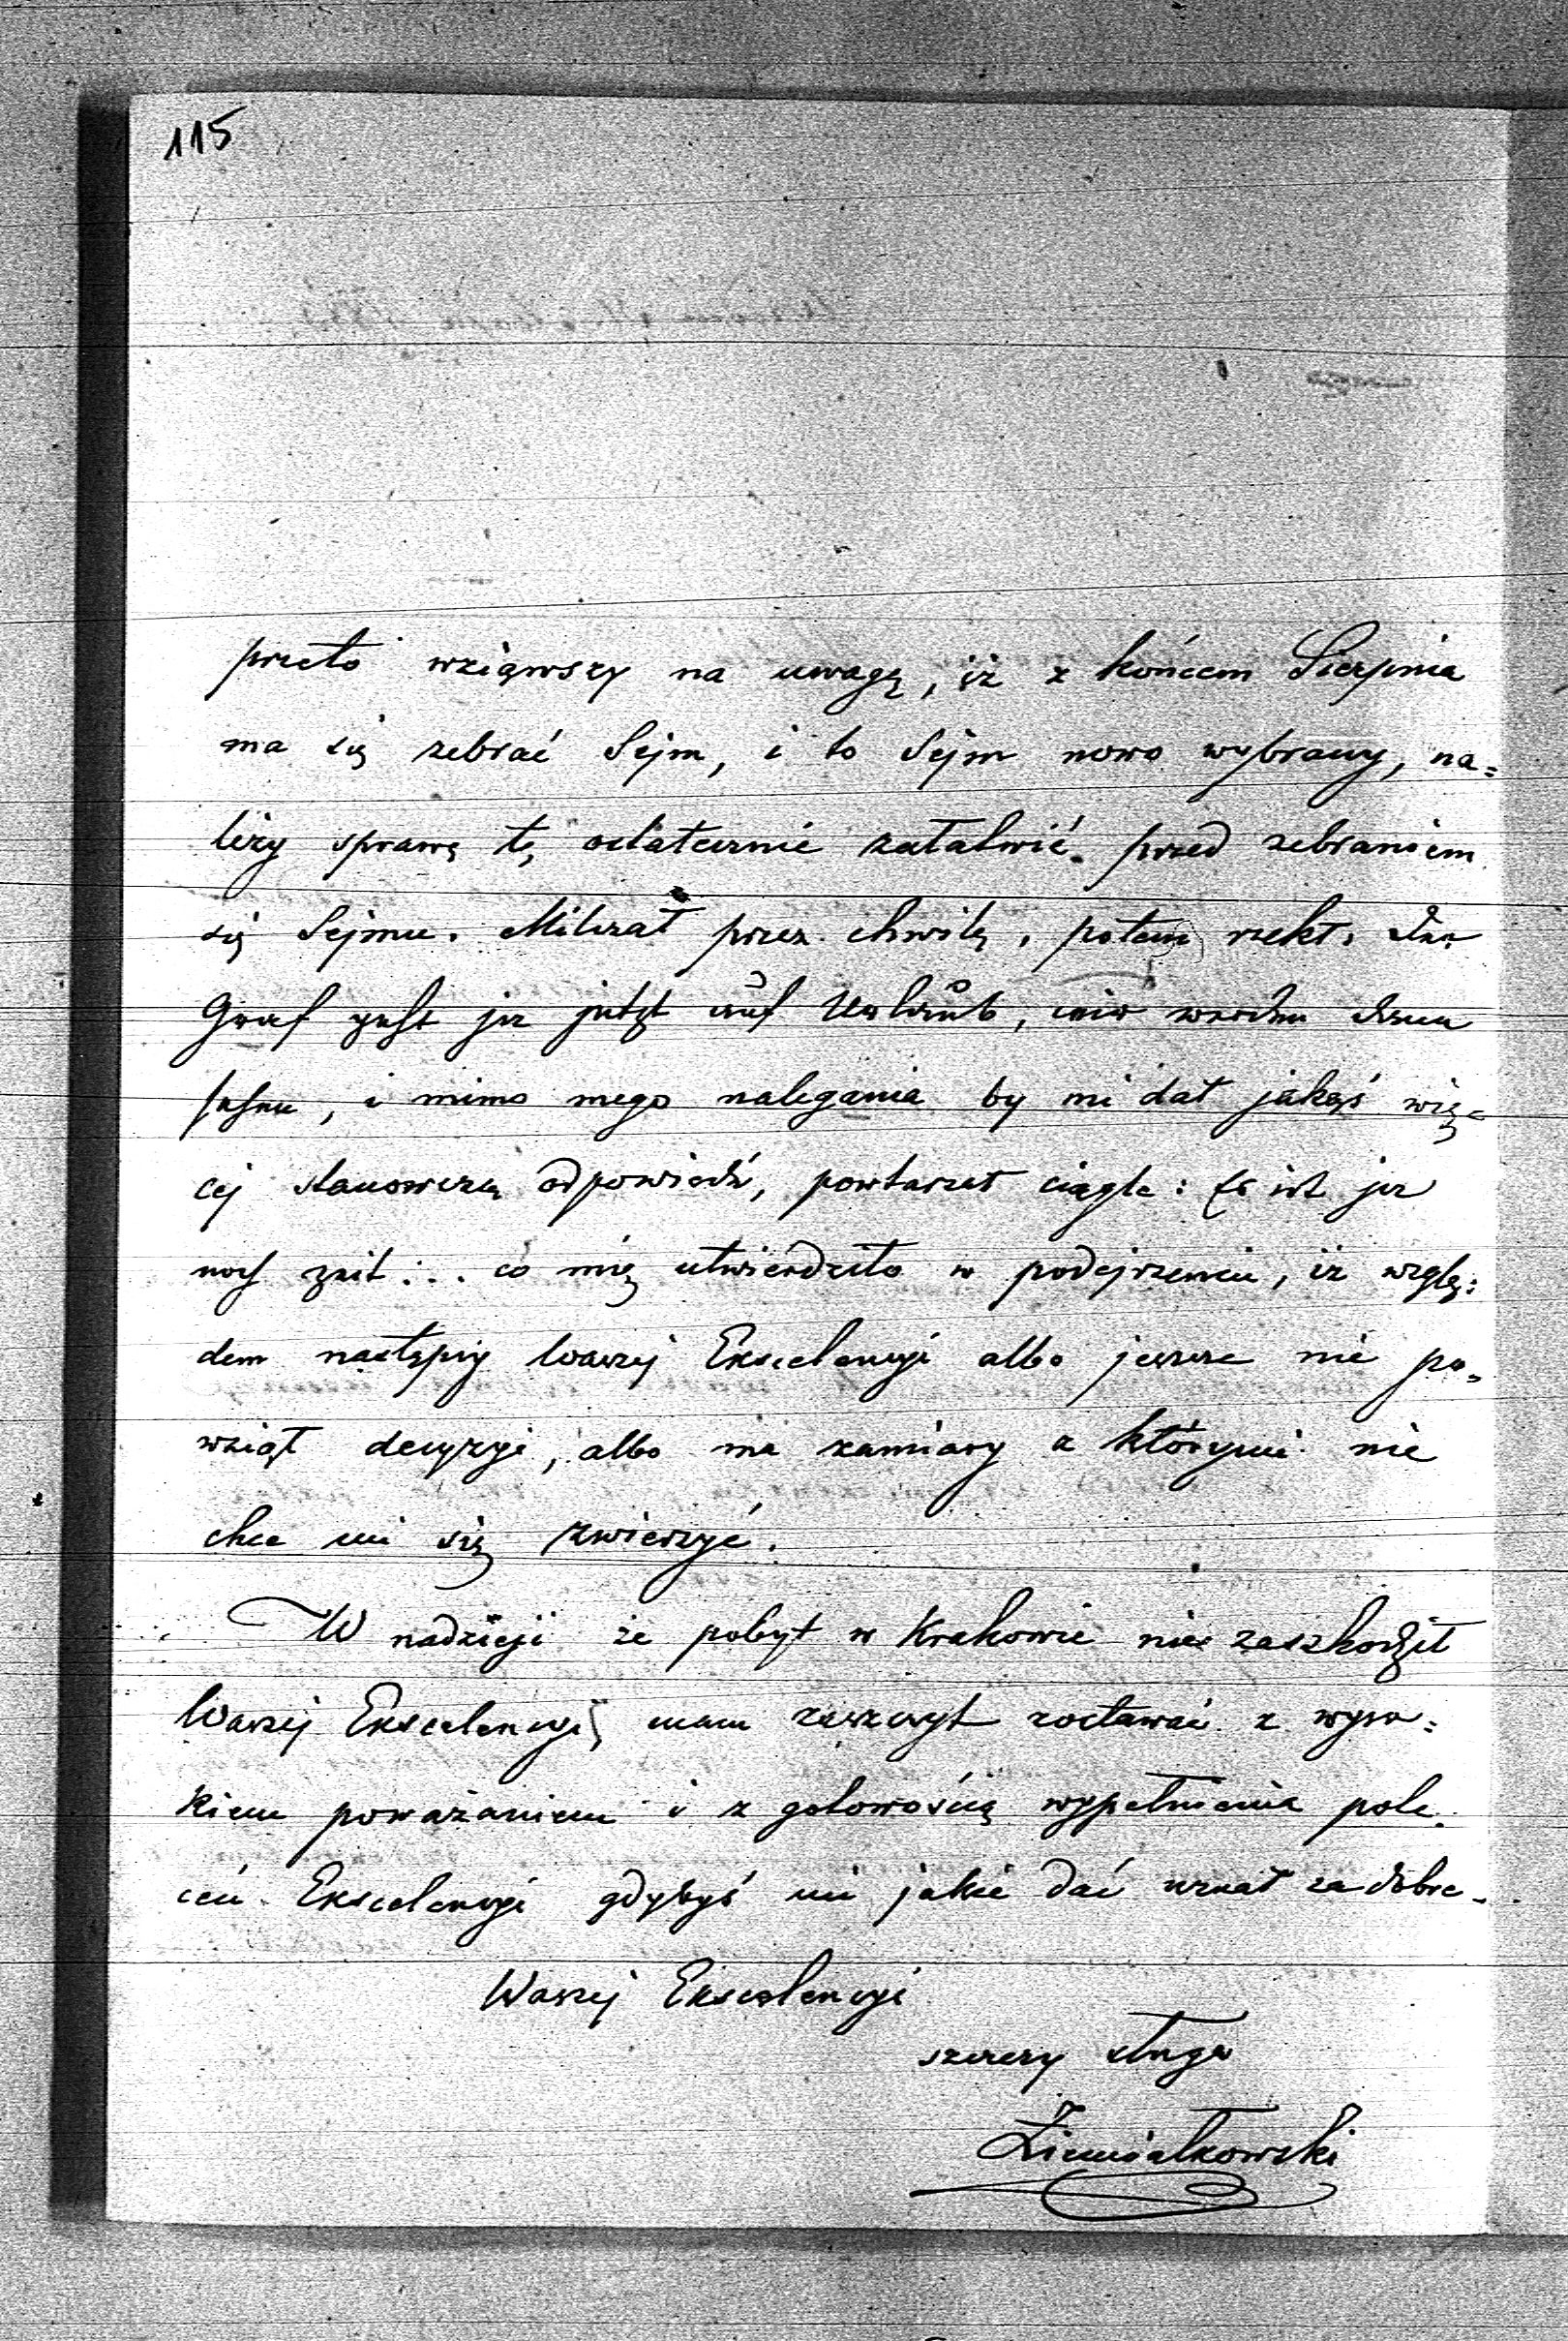 115
przeto wziąwszy na uwagę, iż z końcem Sierpnia
ma się zebrać Sejm, i to Sejm nowo wybrany, na=
leży sprawę tę ostatecznie załatwić przed zebraniem
się Sejmu. Milczał przez chwilę, potem rzekł: Der
Graf geht ja jetzt auf Urlaub, wir werden dann
sehen, i mimo mego nalegania by mi dał jakąś wię=
cej stanowczą odpowiedź, powtarzał ciągle: Es ist ja
noch Zeit... co mię utwierdziło w podejrzeniu, iż wzglę=
dem następcy Waszej Ekscelencyi albo jeszcze nie po=
wziął decyzyi, albo ma zamiary z którymi nie
chce mi się zwierzyć.
W nadzieji że pobyt w Krakowie nie zaszkodził
Waszej Ekscelencyi, mam zaszczyt zostawać z wyso=
kiem poważaniem i z gotowością wypełnienia pole=
ceń Ekscelencyi gdybyś mi jakie dać uznał za dobre.
Waszej Ekscelencyi
szczery sługa
Ziemiałkowski